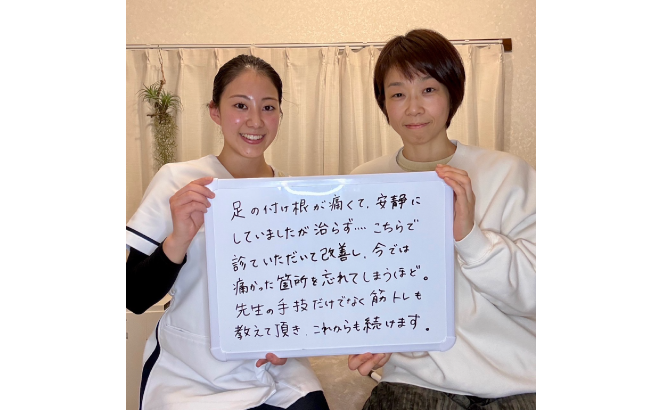 足の付け根が痛くて、安静に
していましたが治らず…. こちらで
診ていただいて改善し、今では
痛かった箇所を忘れてしまうほど。
先生の手技だけでなく筋トレも
教えて頂き、これからも続けます。